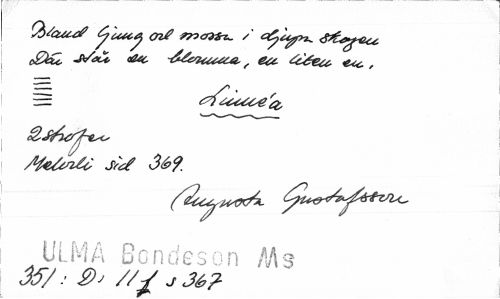 Bland ljung och mossa i djupa skogen
Där står en blomma, en liten en.
Linnéa
2 strofer
Melodi sid 369.
Augusta Gustafsson
ULMA Bondeson Ms
351: D: 11 f s 367